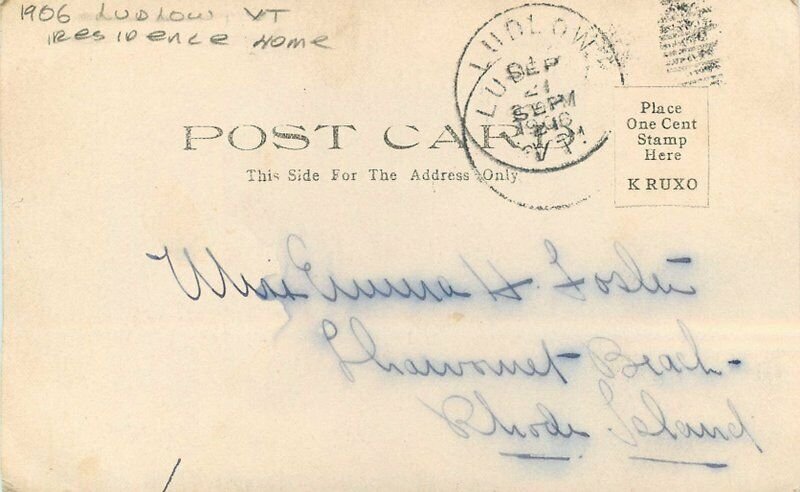 1906 LUDLOW, VT
RESIDENCE HOME
LUDLOW
SEP
21
1906
VT.
POST CARD
This Side For The Address Only
Place
One Cent
Stamp
Here
KRUXO
Miss Emma H. Foster
Shawomet Beach-
Rhode Island